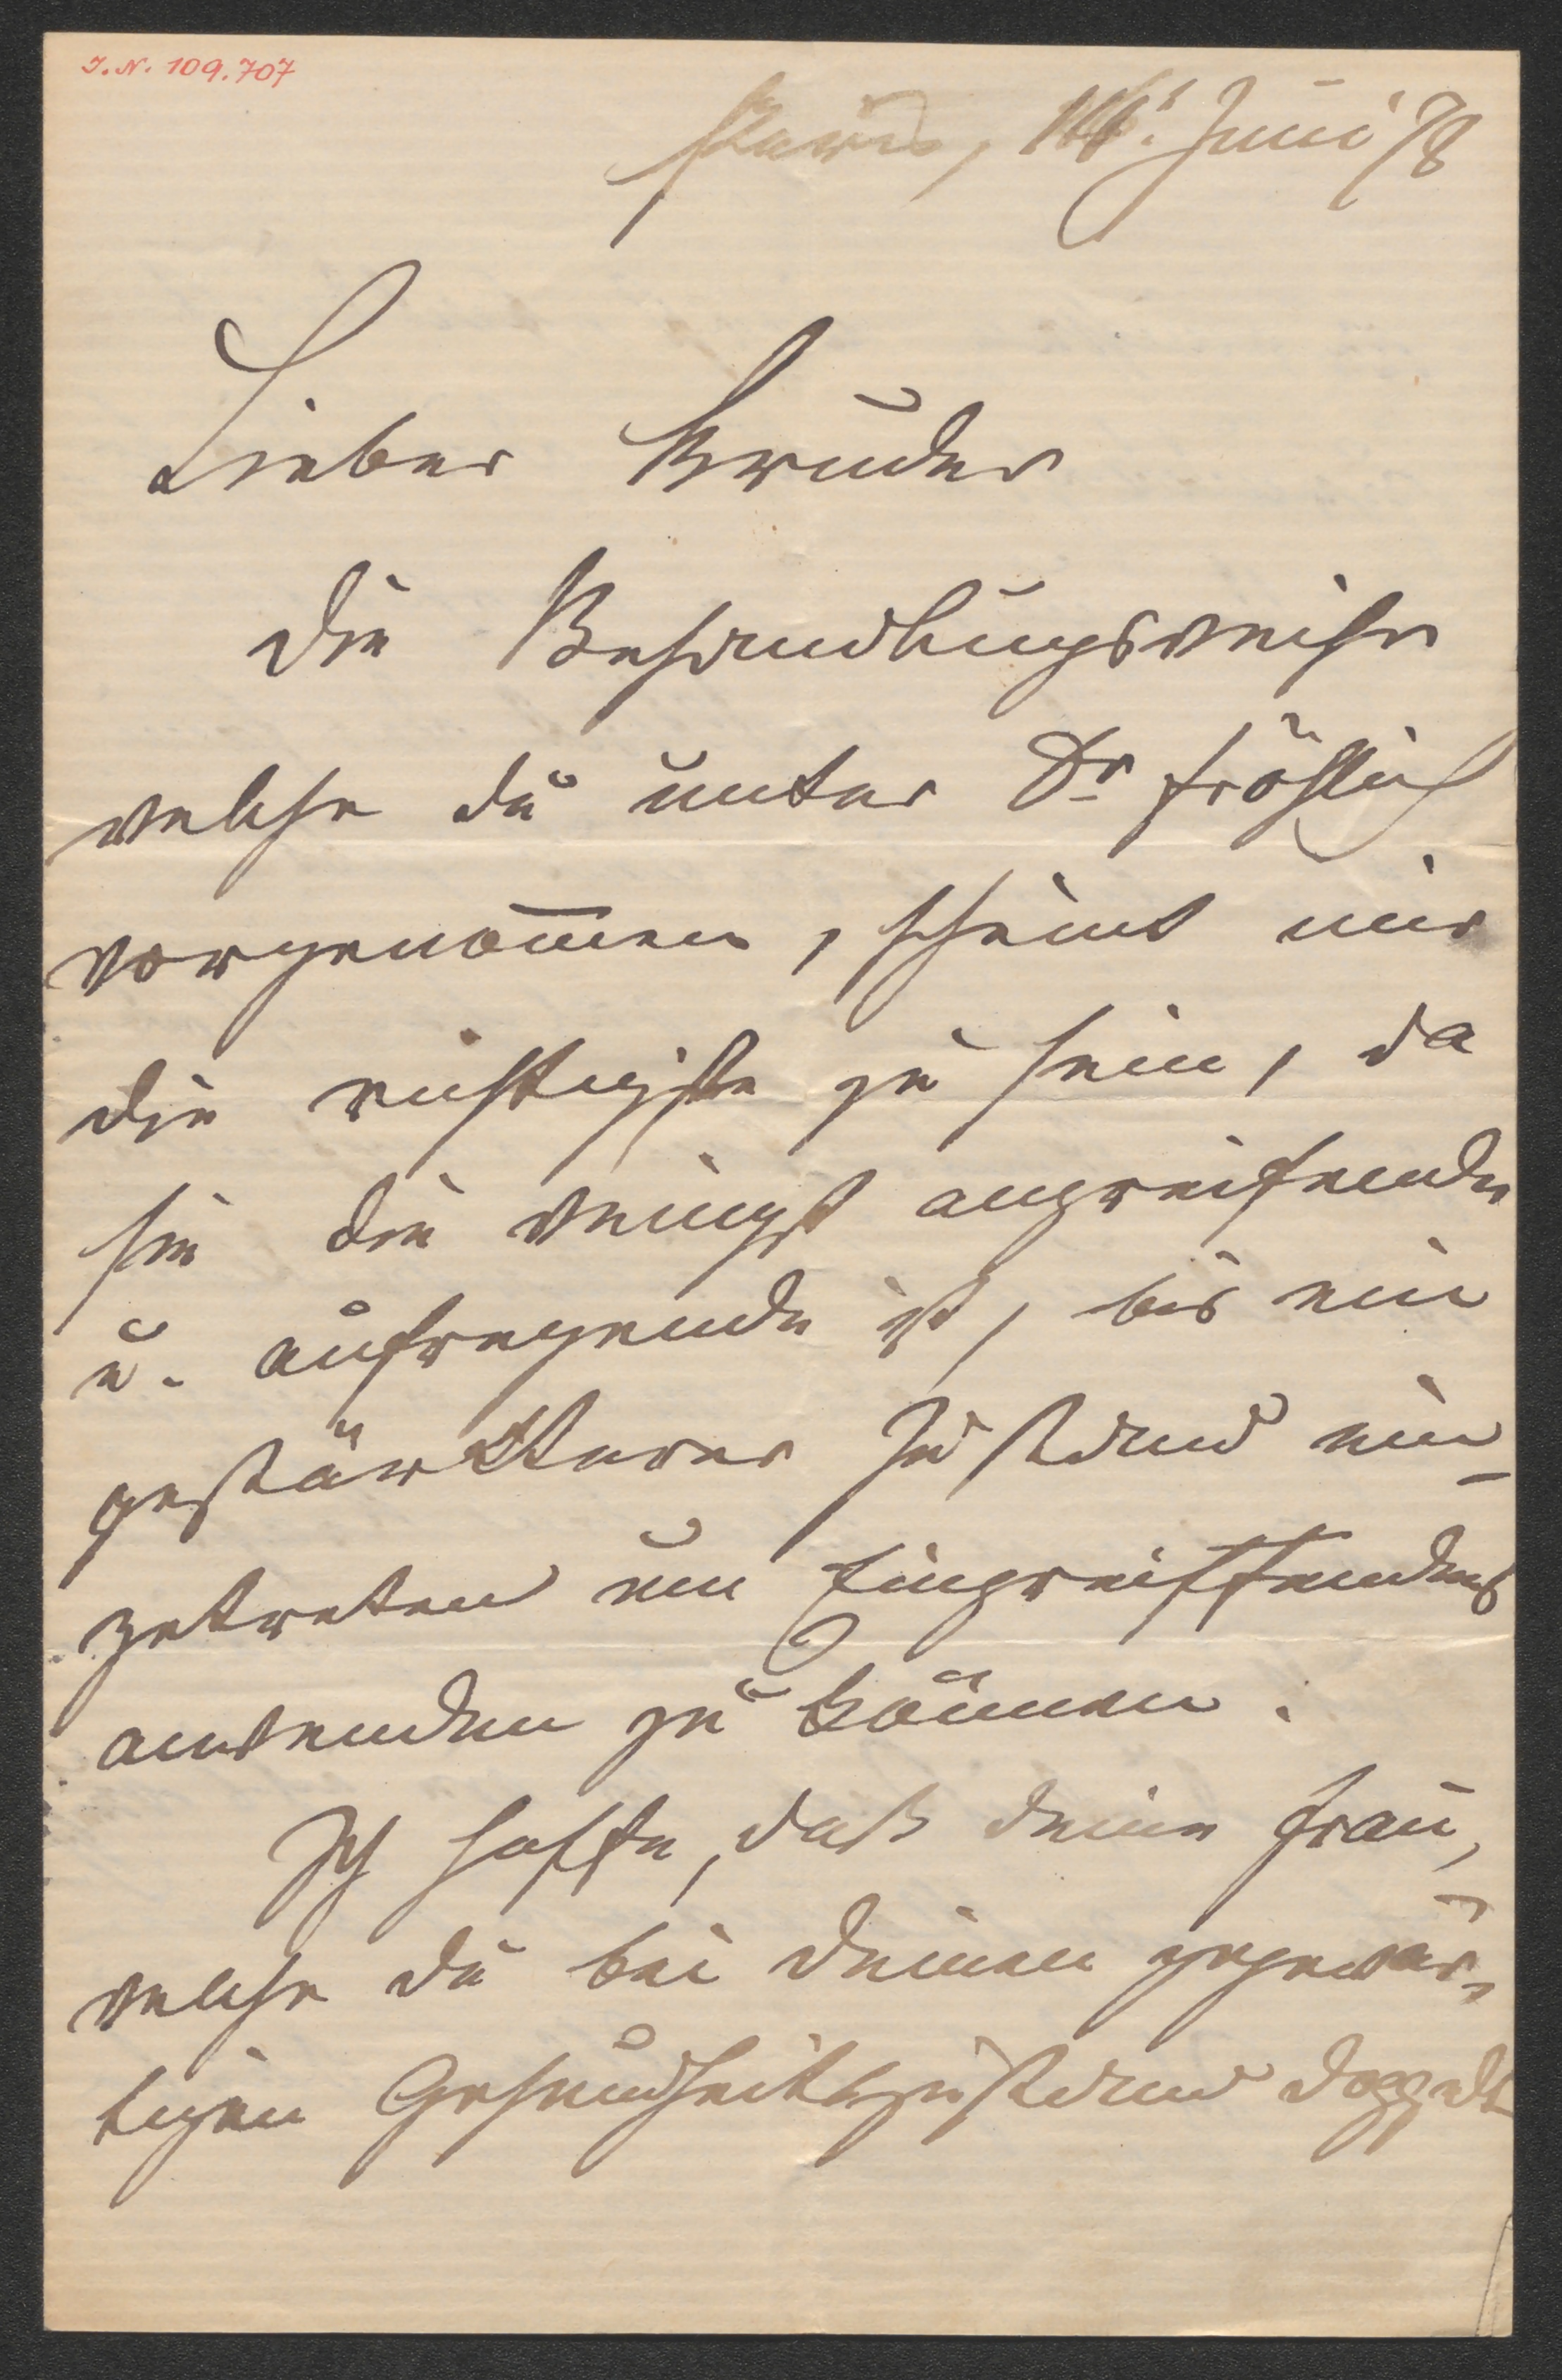 I.N. 109.707
Paris, Juni 78
Lieber Bruder
die Behandlungsweise
welche du unter Dr Fröhlich
vorgenom̅en, scheint mir
die richtigste zu sein, da
sie die wenigst angreifende
u. aufregende ist, bis ein
gestärkterer Zustand ein-
getreten um Eingreiffendes
anwenden zu können.
Ich hoffe, daß deine Frau,
welche du bei deinen gegenwär-
tigen Gesundheitszustand doppelt